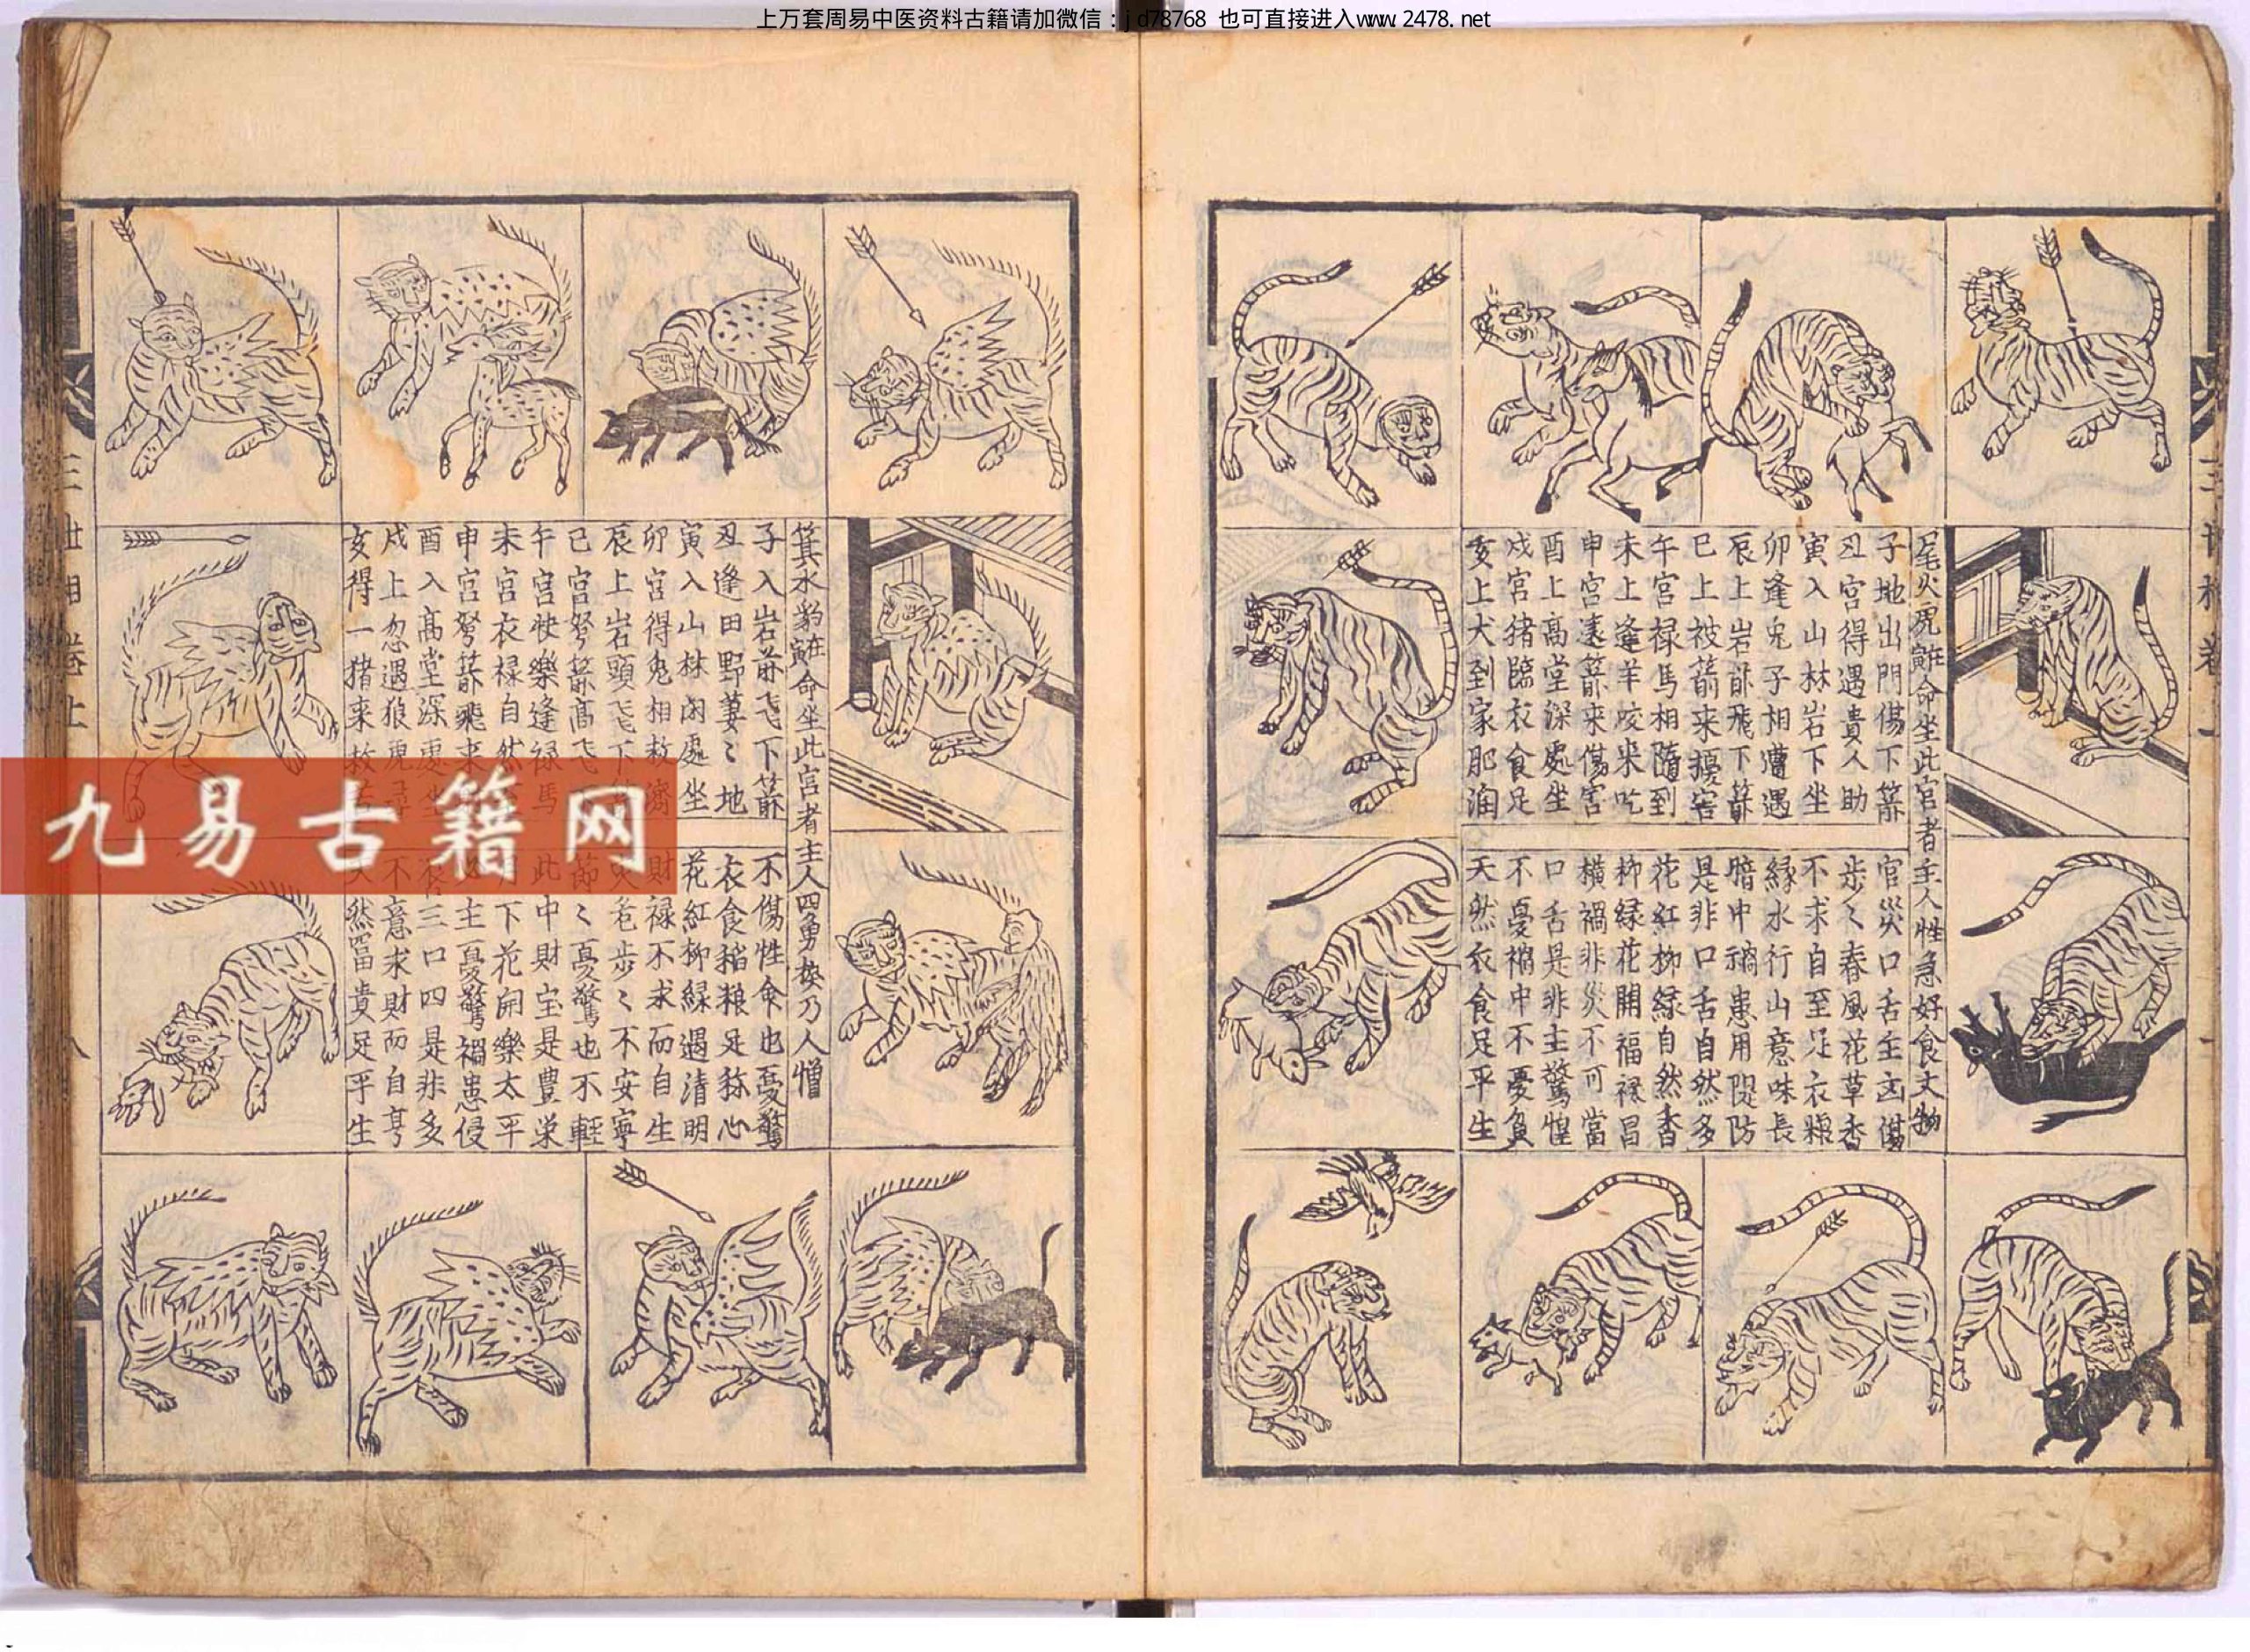 上万套周易中医资料古籍请加微信：jd78768 也可直接进入www.2478.net
尾火虎在寅命坐此宮者主人性急好食丈物
子地出門傷下箭
丑宮得遇貴人助
寅入山林岩下坐
卯逢兎子相遭遇
辰上岩前飛下箭
巳上被箭来擾害
午宮禄馬相隨到
未上逢羊咬来吃
申宮遠箭来傷害
酉上高堂深處坐
戌宮猪臨衣食足
亥上犬到家肥潤
官災口舌主凶傷
步〻春風花草香
不求自至足衣粮
緑水行山意味長
暗中禍患用隄防
是非口舌自然多
花紅柳緑自然香
柳緑花開福禄昌
橫禍非災不可當
口舌是非主驚惶
不憂禍中不憂負
天然衣食足平生
箕水豹在寅命坐此宮者主人四勇㛐乃人憎
子入岩前飞下箭
丑逢田野萋〻地
寅入山林闲處坐
卯宮得兎相救濟
辰上岩頭飞下
巳宮弩箭高飞
午宮快樂逢禄馬
未宮衣禄自然
申宮弩箭飛来
酉入高堂深處坐
戌上忽遇狼虎尋
亥得一猪来救
不傷性命也憂驚
衣食稲粮足称心
花紅柳緑遇清明
財禄不求而自生
災危步〻不安寧
節〻憂驚也不輕
此中財宝是豊栄
月下花開樂太平
主憂驚禍患侵
三口四是非多
不意求財而自亨
天然富貴足平生
三世相卷上
八
九易古籍网